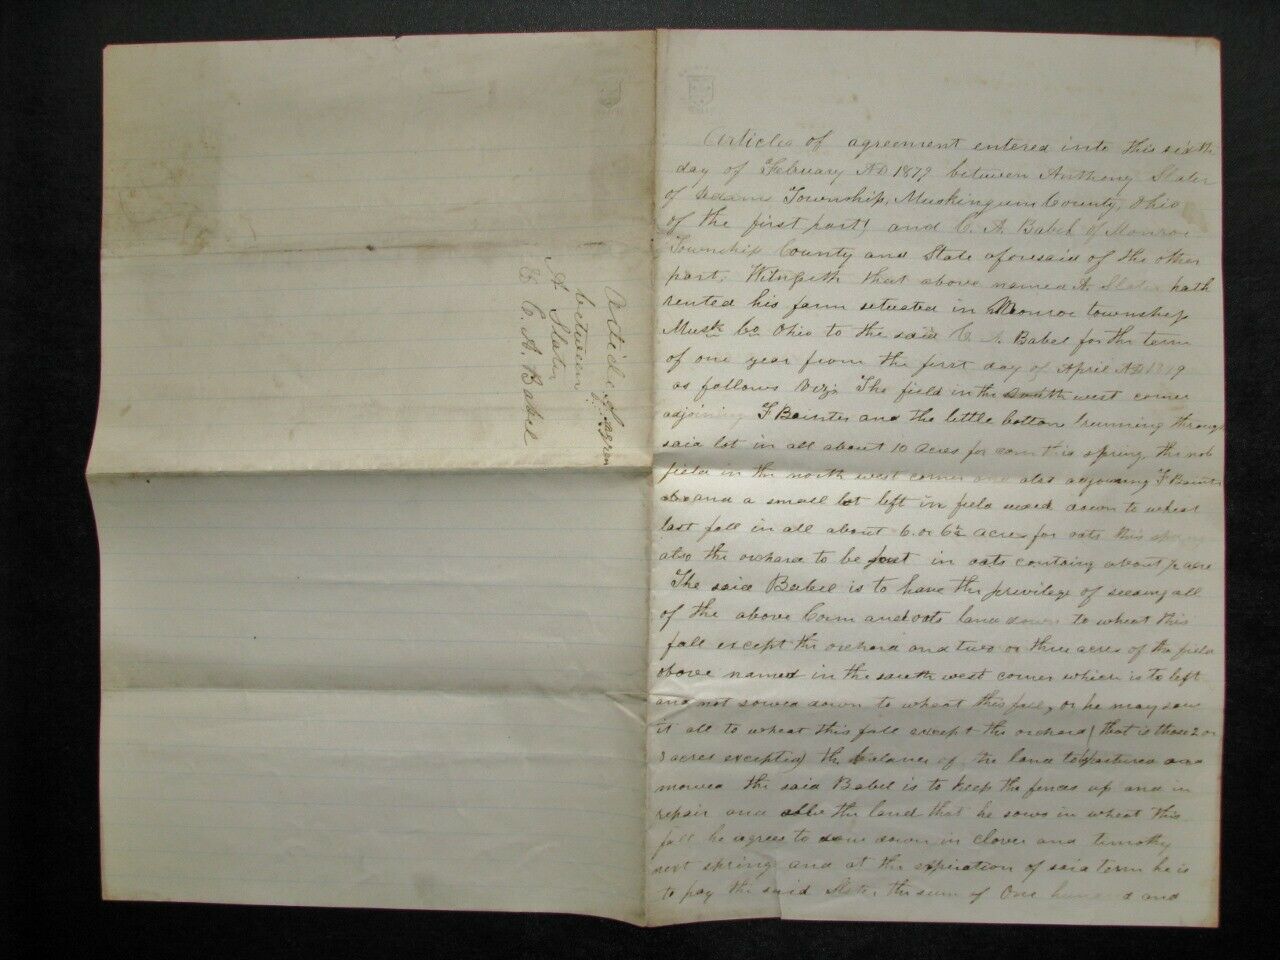 Article of agreem
between
A Slater
& C. A. Babel
Articles of agreement entered into this sixth
day of February AD 1879 between Anthony Slater
of Adams Township, Muskingum County, Ohio
of the first part and C. A. Babel of Monroe
Township County and State aforesaid of the other
part, Witneseth that above named A. Slater hath
rented his farm situated in Monroe township
Musk Co Ohio to the said C A Babel for the term
of one year from the first day of April AD 1879
as follows Viz; The field in the south west corner
adjoining F Bainter and the little bottom running through
said lot in all about 10 acres for corn this spring, the nob
field in the north west corner also adjoining F Bainter
and a small lot left in field sowed down to wheat
last fall in all about 6. or 6½ acres for oats this spring
also the orchard to be put in oats containg about ½ acre
The said Babel is to have the privilege of seeding all
of the above Corn and oats land down to wheat this
fall except the orchard and two or three acres of the field
above named in the south west corner which is to left
and not sowed down to wheat this fall, or he may sow
it all to wheat this fall except the orchard (that is those 2 or
3 acres excepted) the balance of the land to pastured and
mowed the said Babel is to keep the fences up and in
repair and all the land that he sows in wheat this
fall he agrees to sow down in clover and timothy
next spring and at the expiration of said term he is
to pay the said Slater the sum of One hundred and